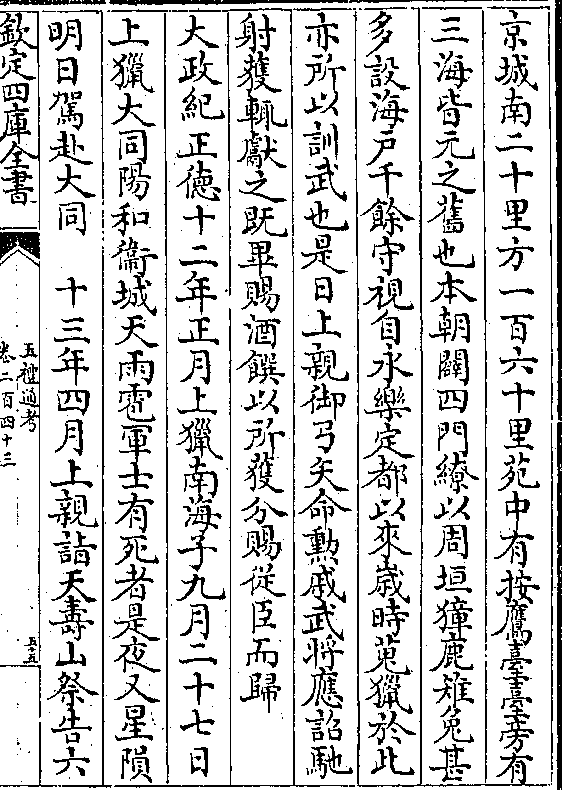 京城南二十里方一百六十里苑中有按鷹臺臺旁有
三海皆元之舊也本朝闢四門繚以周垣獐鹿雉兔甚
多設海户千餘守視自永樂定都以來歲時蒐獵於此
亦所以訓武也是日上親御弓矢命勲戚武将應詔馳
射獲輒獻之既畢賜酒饌以所獲分賜從臣而歸
大政紀正德十二年正月上獵南海子九月二十七日
上獵大同陽和衞城天雨雹軍士有死者是夜又星隕
明日駕赴大同　十三年四月上親詣天壽山祭告六
欽定四庫全書
五禮通考
卷二百四十三
五十五